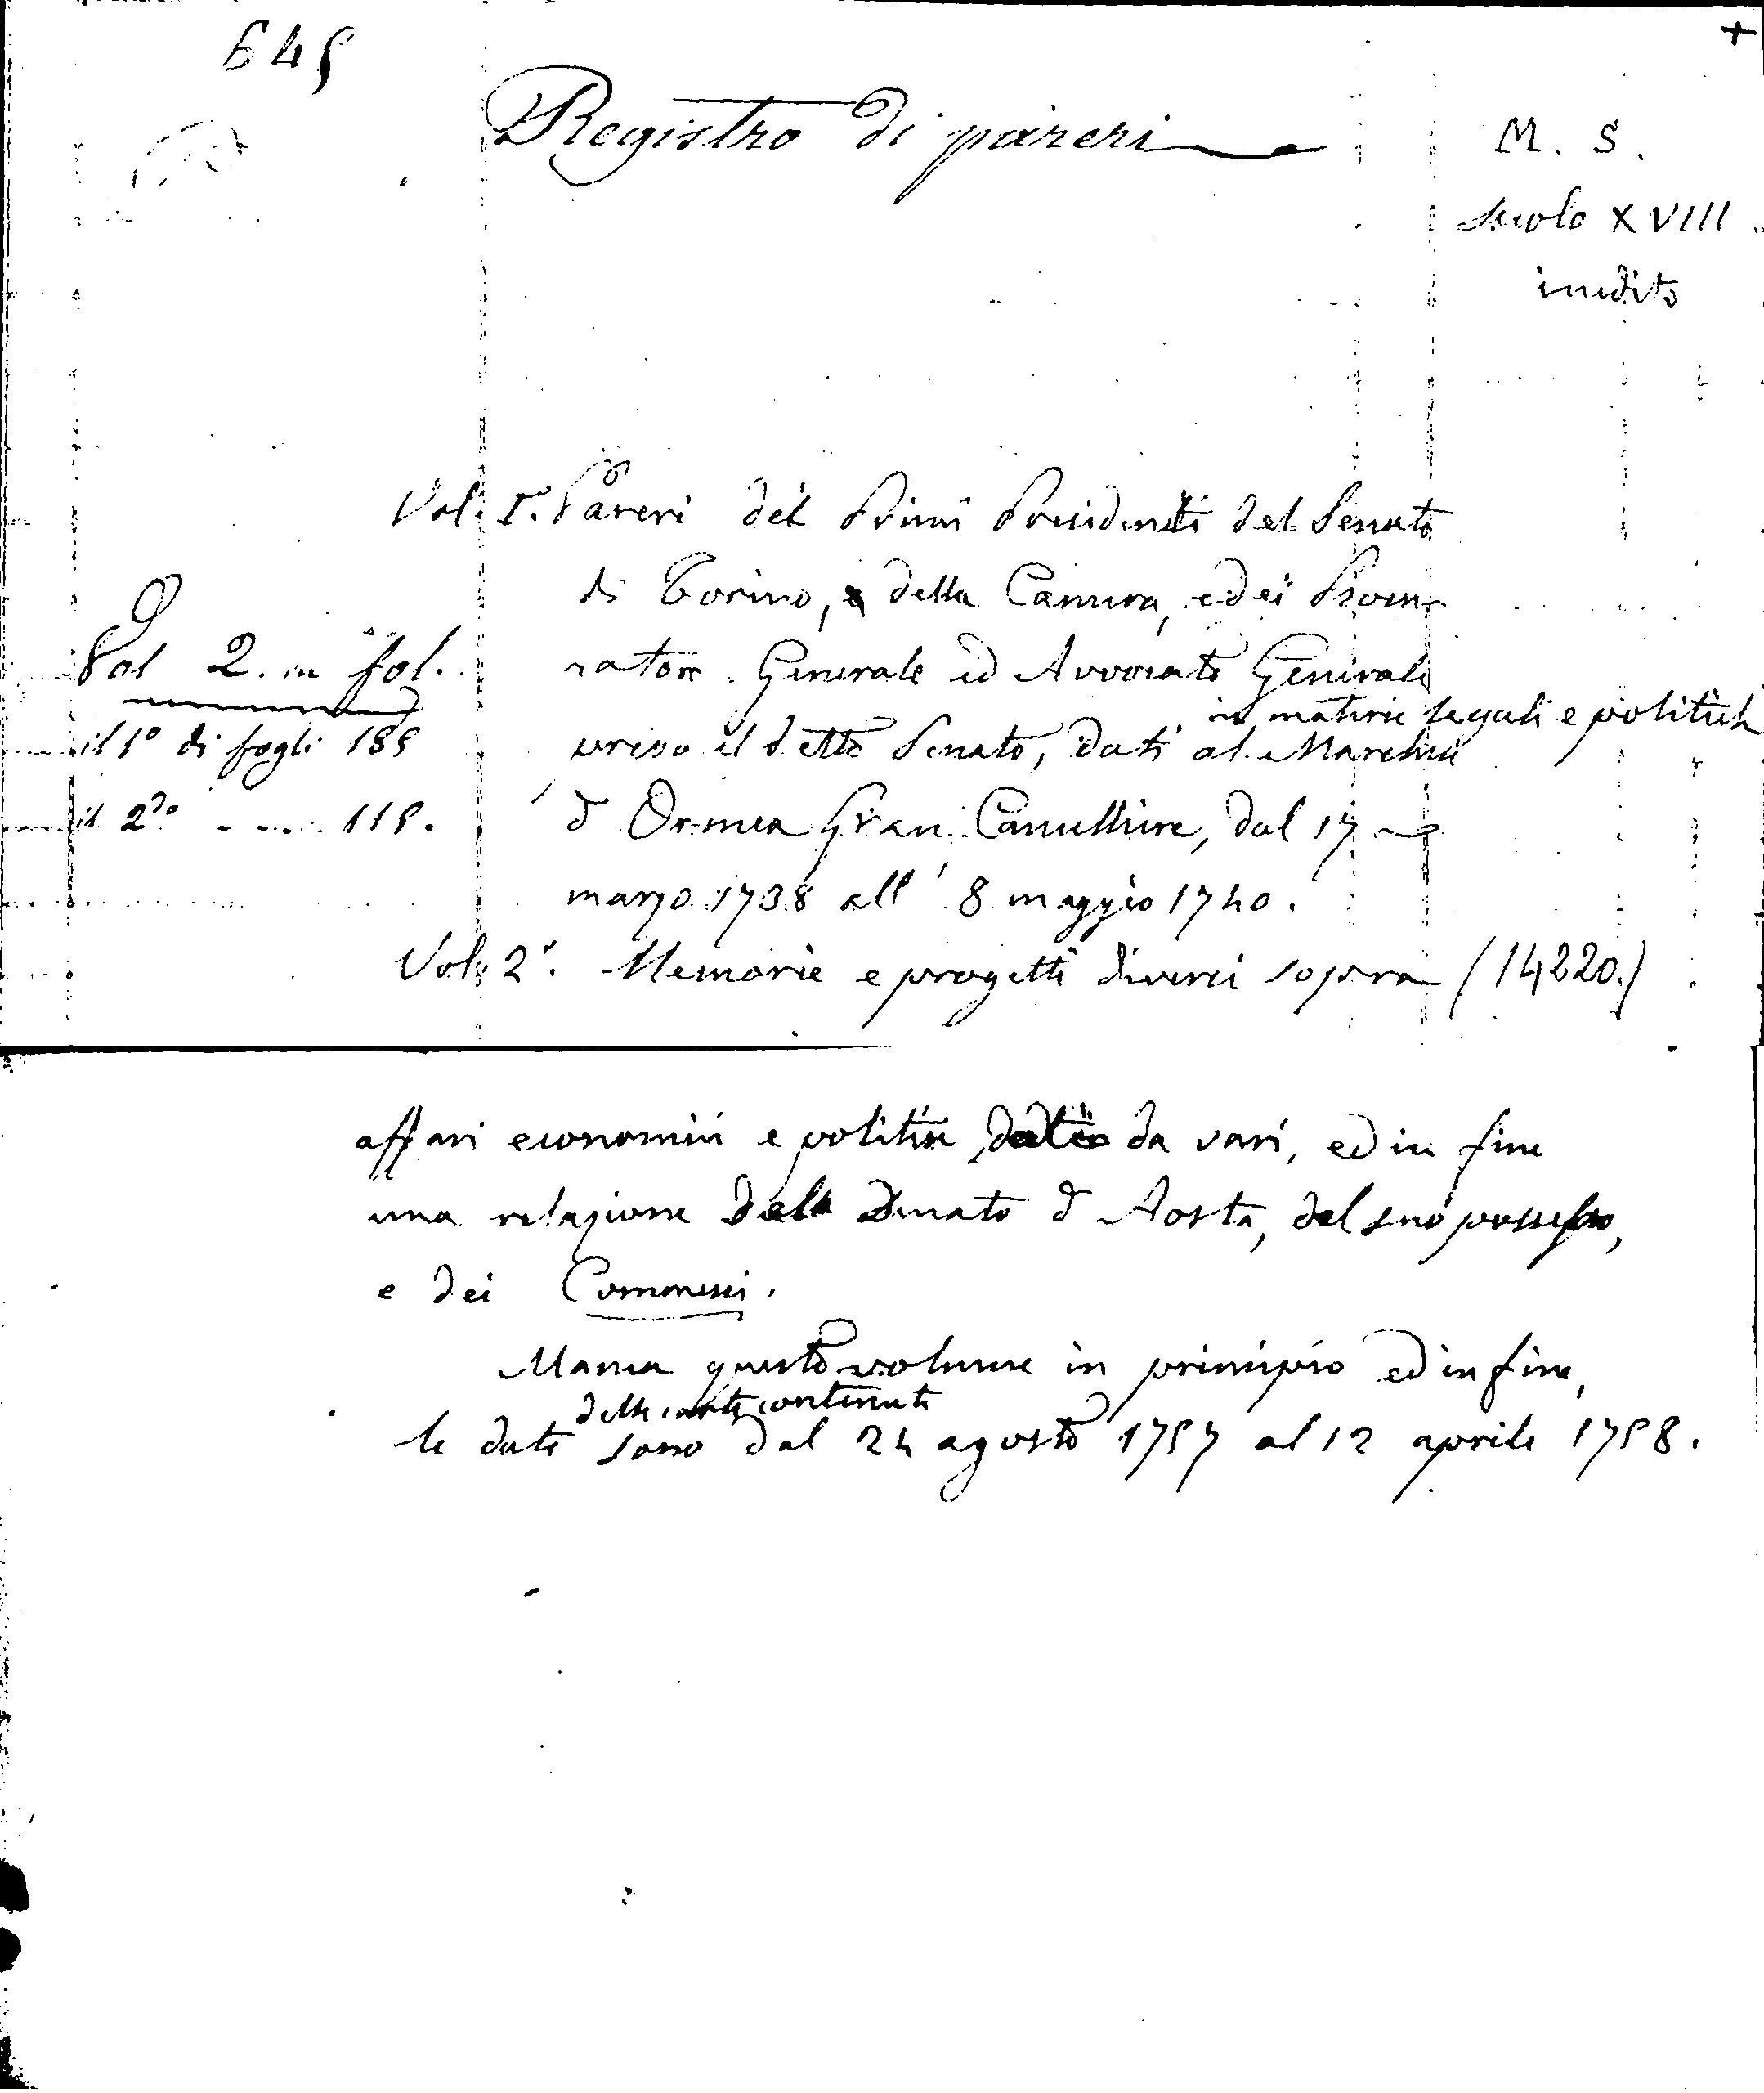 645
+
Registro di pareri
M. S.
secolo XVIII
inedito
Vol. I. Pareri dei Primi Presidenti del Senato
di Torino, e della Camera, e dei Procu-
ratore Generale ed Avvocato Generale
in materie legali e politiche
presso il detto Senato, dati al Marchese
d'Ormea Gran Cancelliere, dal 17
marzo 1738 all' 8 maggio 1740.
Vol 2. in fol.
il 1º di fogli 185
il 2do - - - 115.
Vol. 2º. Memorie e progetti diversi sopra (14220.)
affari economici e politici da vari, ed in fine
una relazione del Ducato d'Aosta, del suo possesso,
e dei Commessi.
Manca questo volume in principio ed in fine,
delle carte contenute
le date sono dal 24 agosto 1757 al 12 aprile 1758.